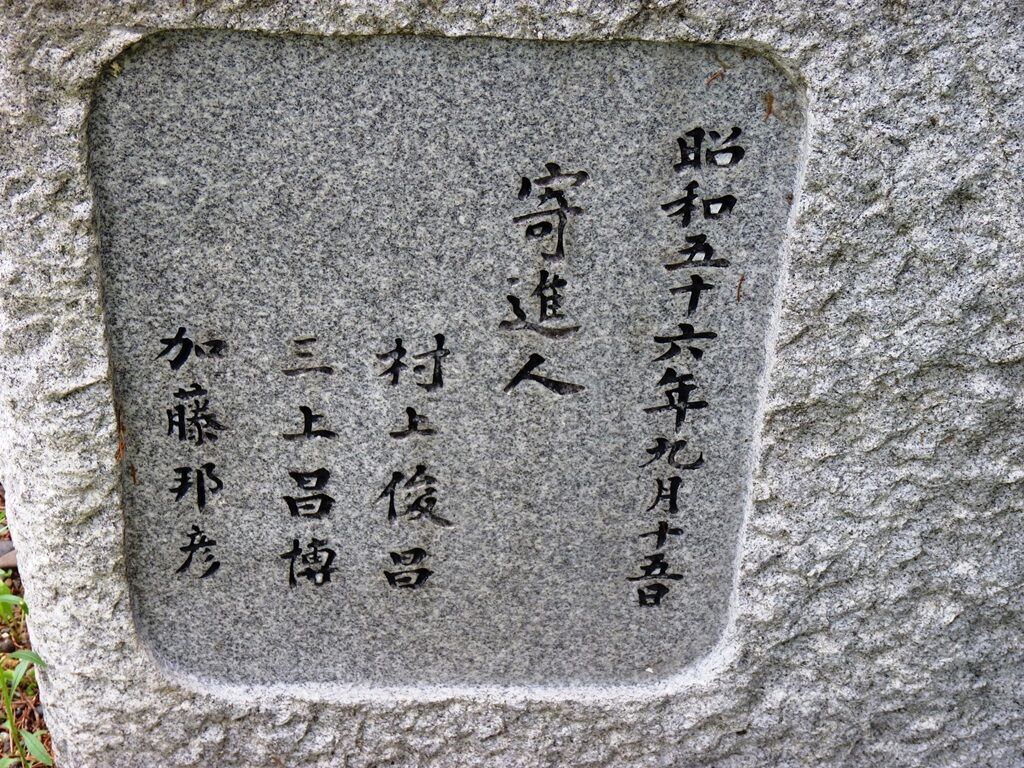 昭和五十六年九月十五日
寄進人
村上俊昌
三上昌博
加藤邦彦